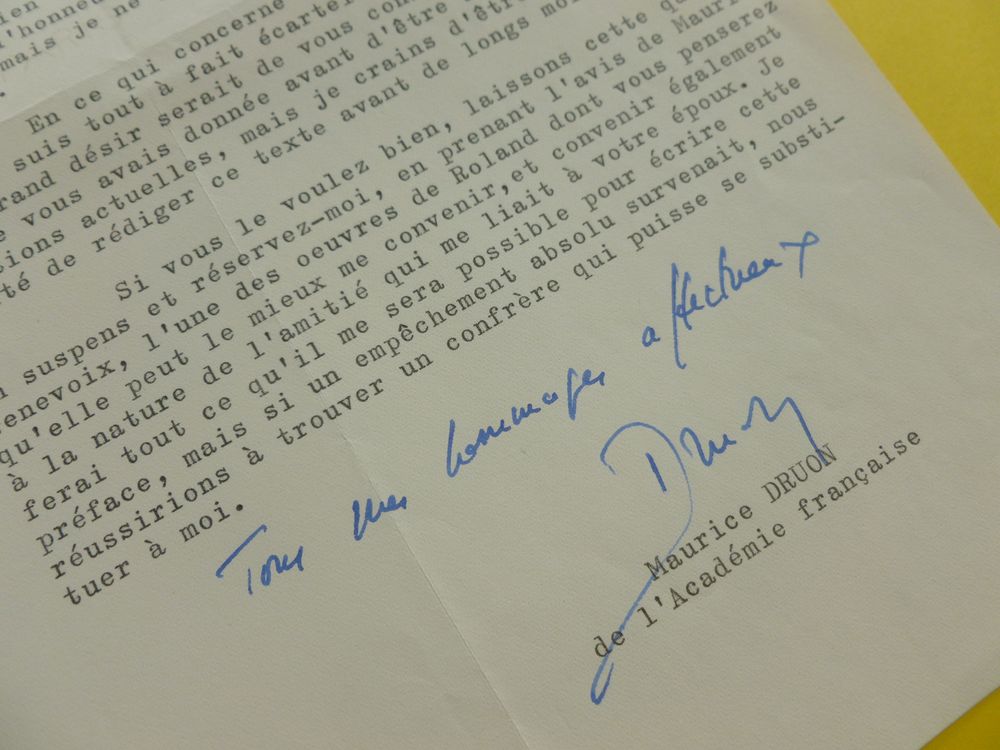 ien
l'honneur
mais je ne
En ce qui concerne
suis tout à fait écarter
rand désir serait de vous com
e vous avais donnée avant d'être
tions actuelles, mais je crains d'êtr
té de rédiger ce texte avant de longs moi
Si vous le voulez bien, laissons cette qu
n suspens et réservez-moi, en prenant l'avis de Mauri
enevoix, l'une des oeuvres de Roland dont vous penserez
qu'elle peut le mieux me convenir, et convenir également
à la nature de l'amitié qui me liait à votre époux. Je
ferai tout ce qu'il me sera possible pour écrire cette
préface, mais si un empêchement absolu survenait, nous
réussirions à trouver un confrère qui puisse se substi-
tuer à moi.
Tous mes hommages affectueux
Druon
Maurice DRUON
de l'Académie française